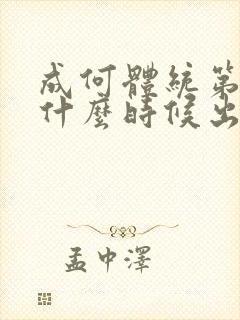 成何體統第
什麼時候出
孟中澤